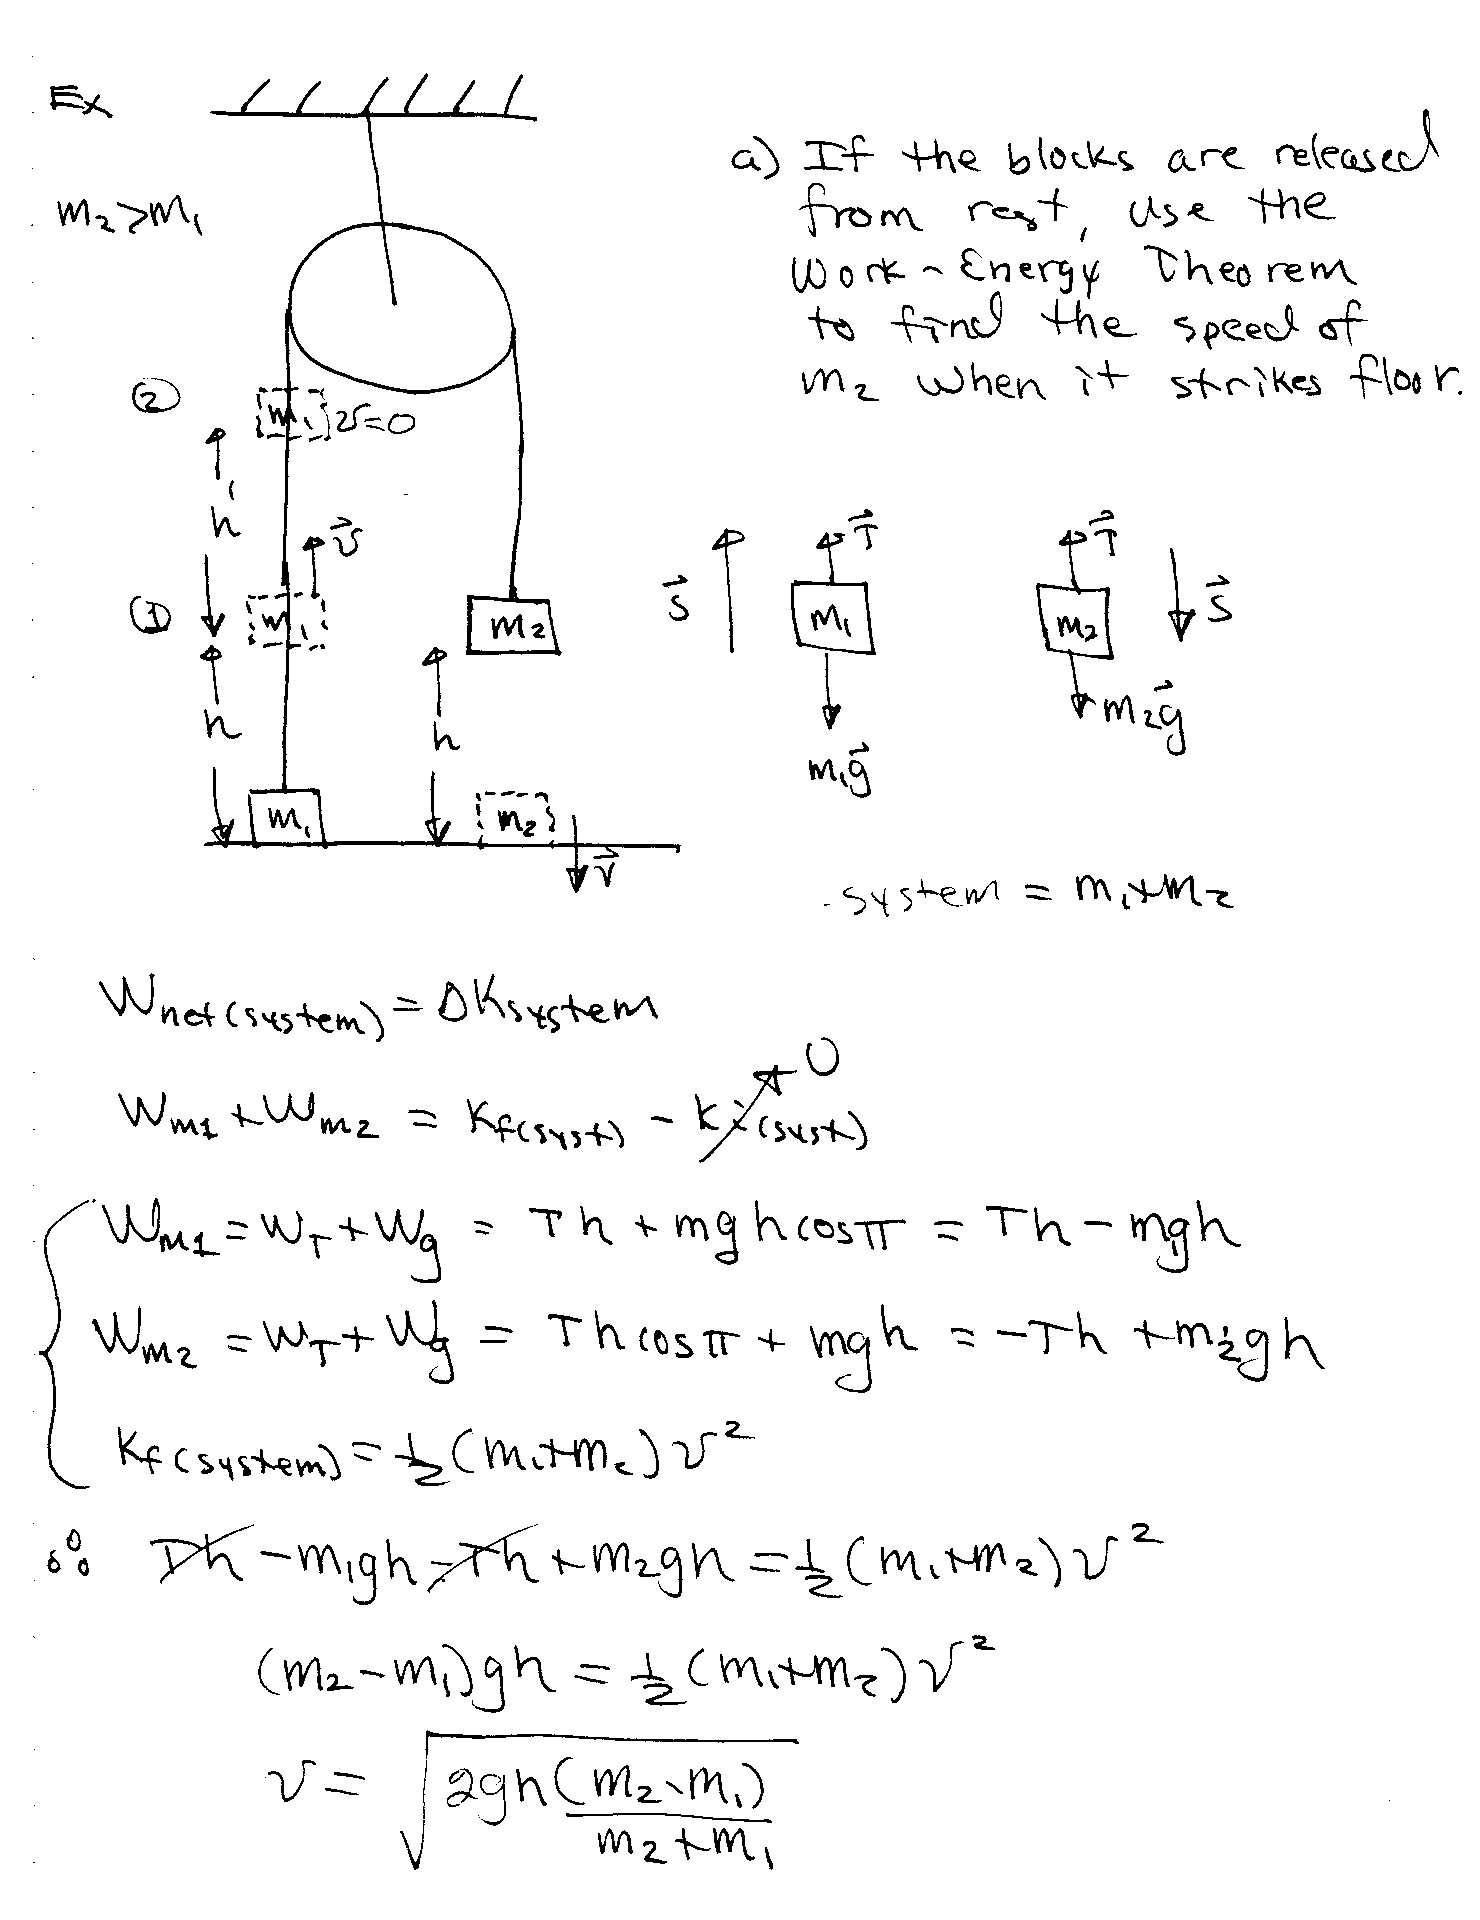 Ex
m₂>m₁
a) If the blocks are released
from rest, use the
Work-Energy Theorem
to find the speed of
m₂ when it strikes floor.
② m₁ v=0
h'
v⃗
① m₁
m₂
h
h
m₁
m₂
v⃗
s⃗
T⃗
m₁
m₁g⃗
T⃗
m₂
s⃗
m₂g⃗
system = m₁+m₂
Wnet(system) = ΔKsystem
Wm1 + Wm2 = Kf(syst) - Ki(syst) 0
Wm1 = WT + Wg = Th + mgh cosπ = Th - m₁gh
Wm2 = WT + Wg = Th cosπ + mgh = -Th + m₂gh
Kf(system) = ½(m₁+m₂)v²
∴ Th - m₁gh - Th + m₂gh = ½(m₁+m₂)v²
(m₂-m₁)gh = ½(m₁+m₂)v²
v = √2gh(m₂-m₁)
m₂+m₁